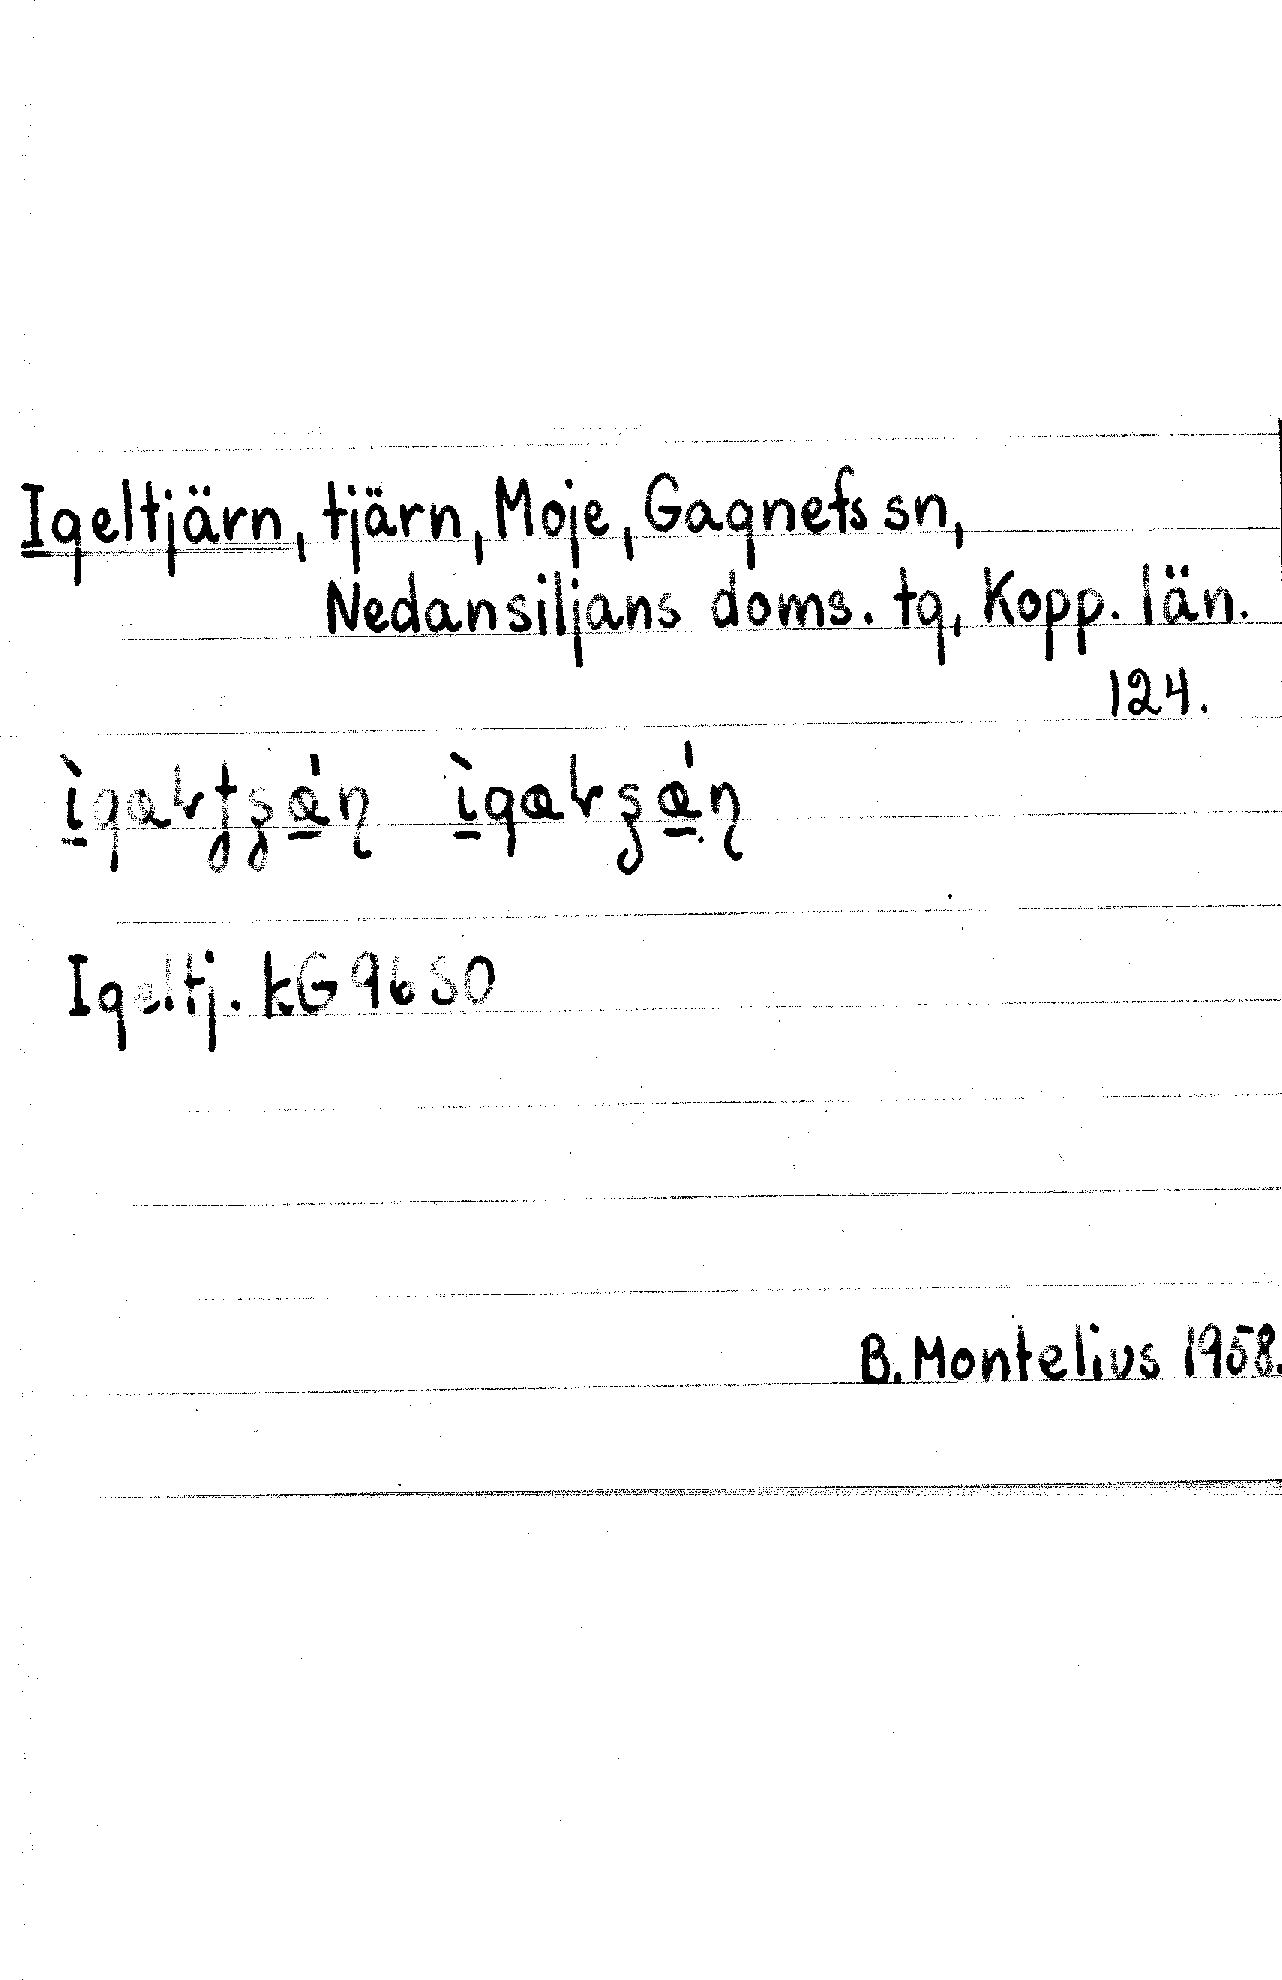 Igeltjärn, tjärn, Moje, Gagnefs sn,
Nedansiljans doms. tg, Kopp. län.
124.
Igeltj. kG 9650
B. Montelius 1958.